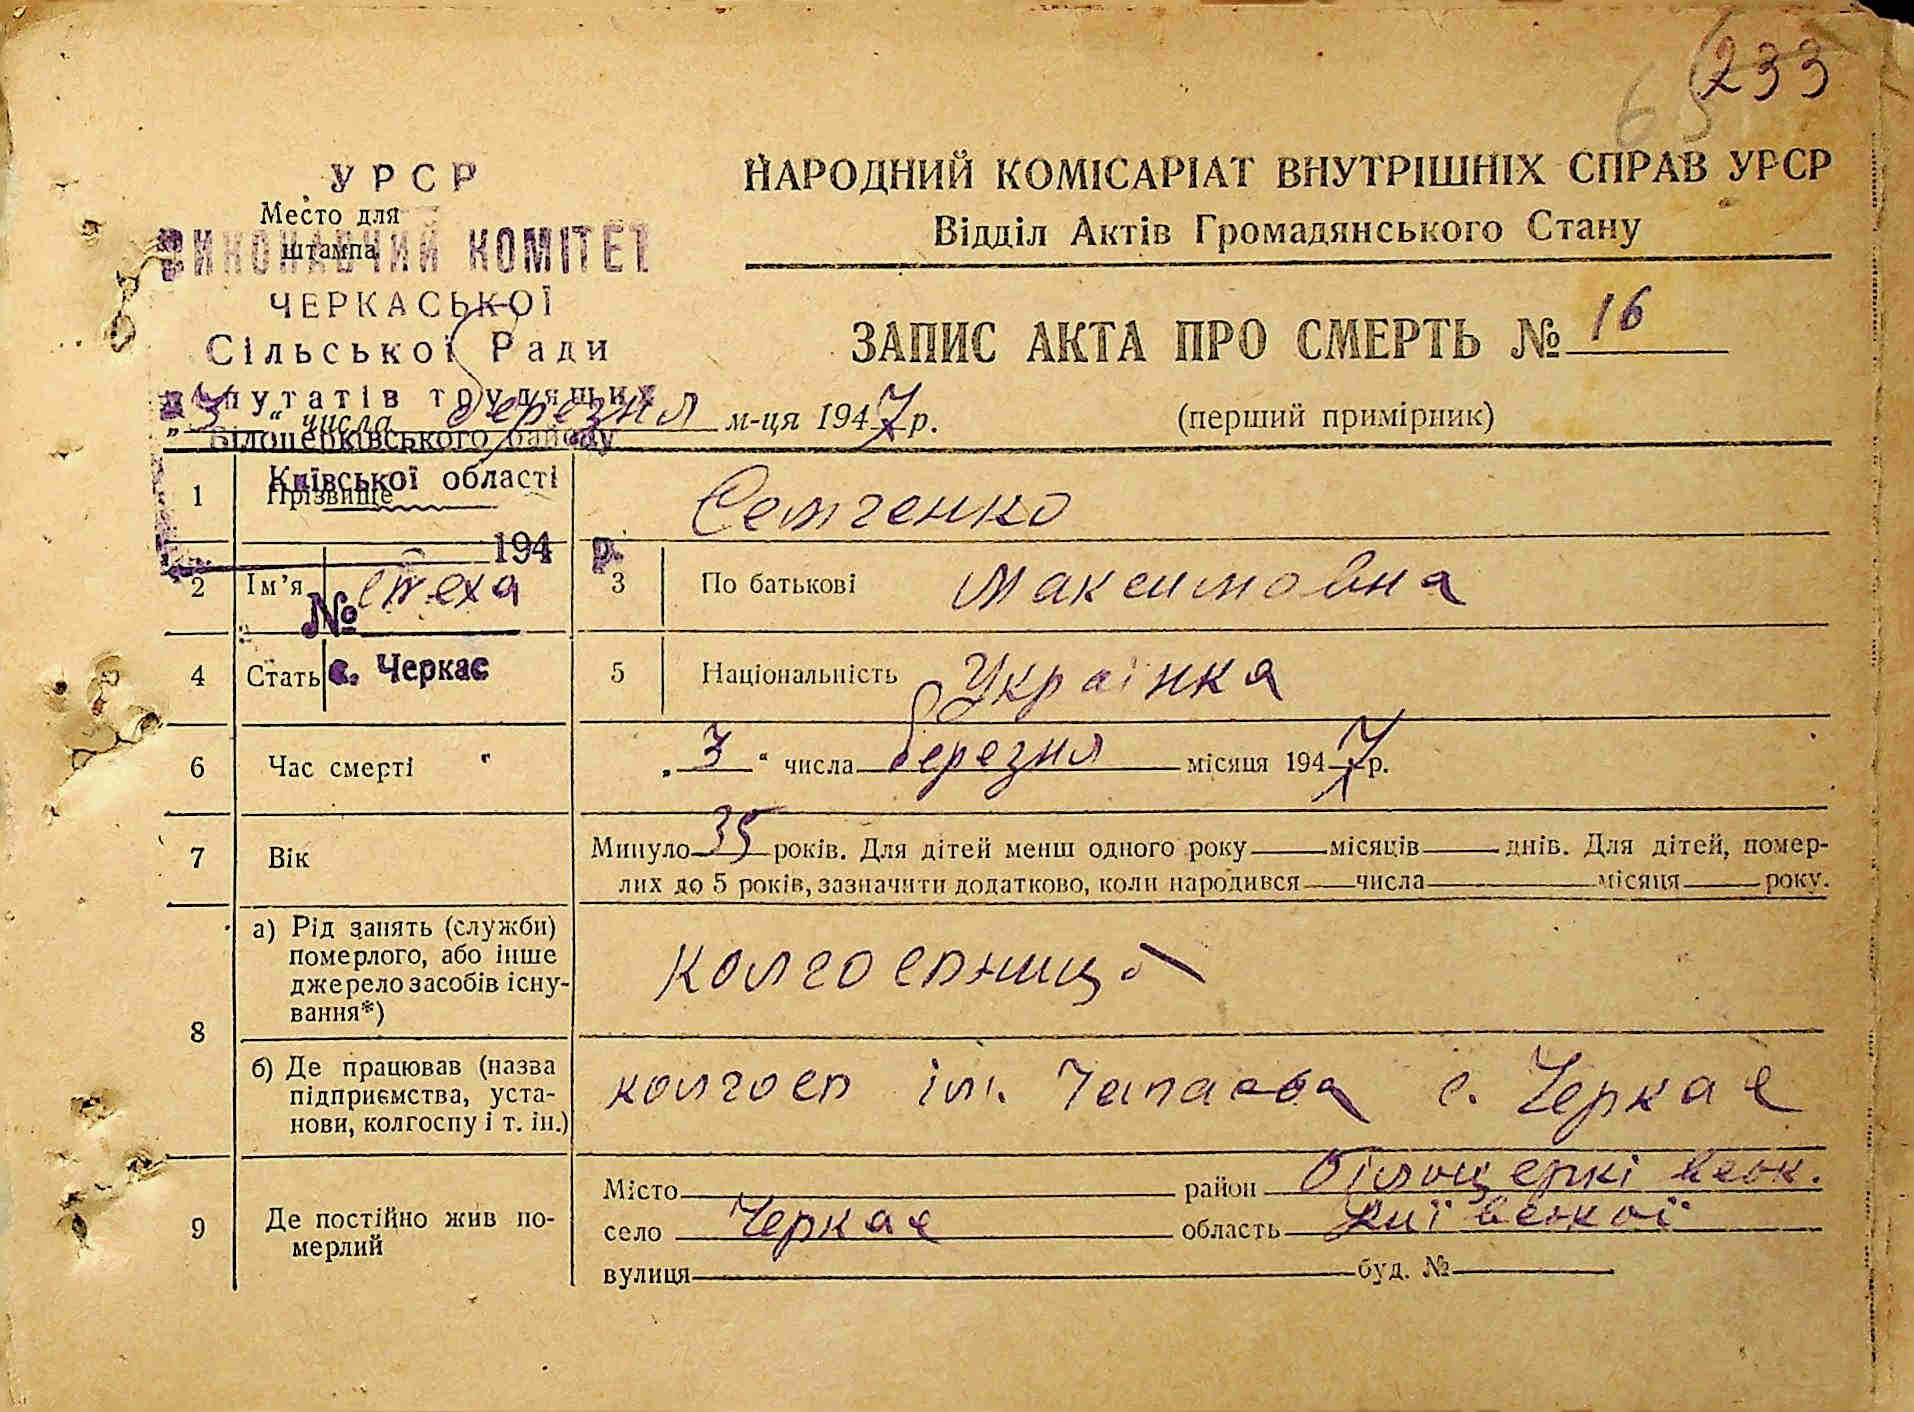 233
65
УРСР
Место для
штампа
ВИКОНАВЧИЙ КОМІТЕТ
ЧЕРКАСЬКОЇ
Сільської Ради
депутатів трудящих
Білоцерківського району
Київської області
194 р.
№
с. Черкас
НАРОДНИЙ КОМІСАРІАТ ВНУТРІШНІХ СПРАВ УРСР
Відділ Актів Громадянського Стану
ЗАПИС АКТА ПРО СМЕРТЬ № 16
„3“ числа березня м-ця 1947 р.
(перший примірник)
1 Прізвище Семченко
2 Ім’я Стеха 3 По батькові Максимовна
4 Стать 5 Національність Українка
6 Час смерті „3“ числа березня місяця 1947 р.
7 Вік Минуло 35 років. Для дітей менш одного року місяців днів. Для дітей, помер-
лих до 5 років, зазначити додатково, коли народився числа місяця року.
8 а) Рід занять (служби)
померлого, або інше
джерело засобів існу-
вання*)
колгоспниця
б) Де працював (назва
підприємства, уста-
нови, колгоспу і т. ін.)
колгосп ім. Чапаєва с. Черкас
9 Де постійно жив по-
мерлий
Місто район Білоцерківськ.
село Черкас область Київської
вулиця буд. №